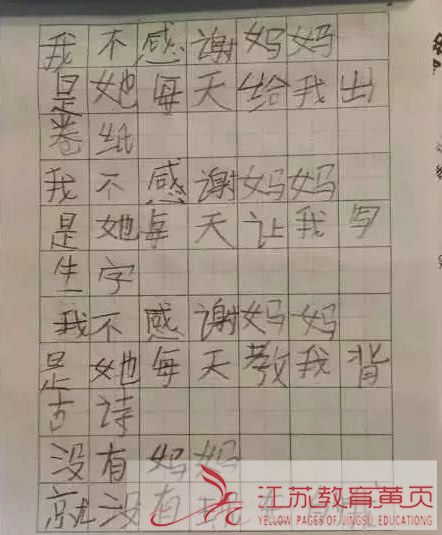 我不感谢妈妈
是她每天给我出
卷纸
我不感谢妈妈
是她每天让我写
生字
我不感谢妈妈
是她每天教我背
古诗
没有妈妈
就没有
江苏教育黄页
YELLOW PAGES OF JINGSU EDUCATIONG